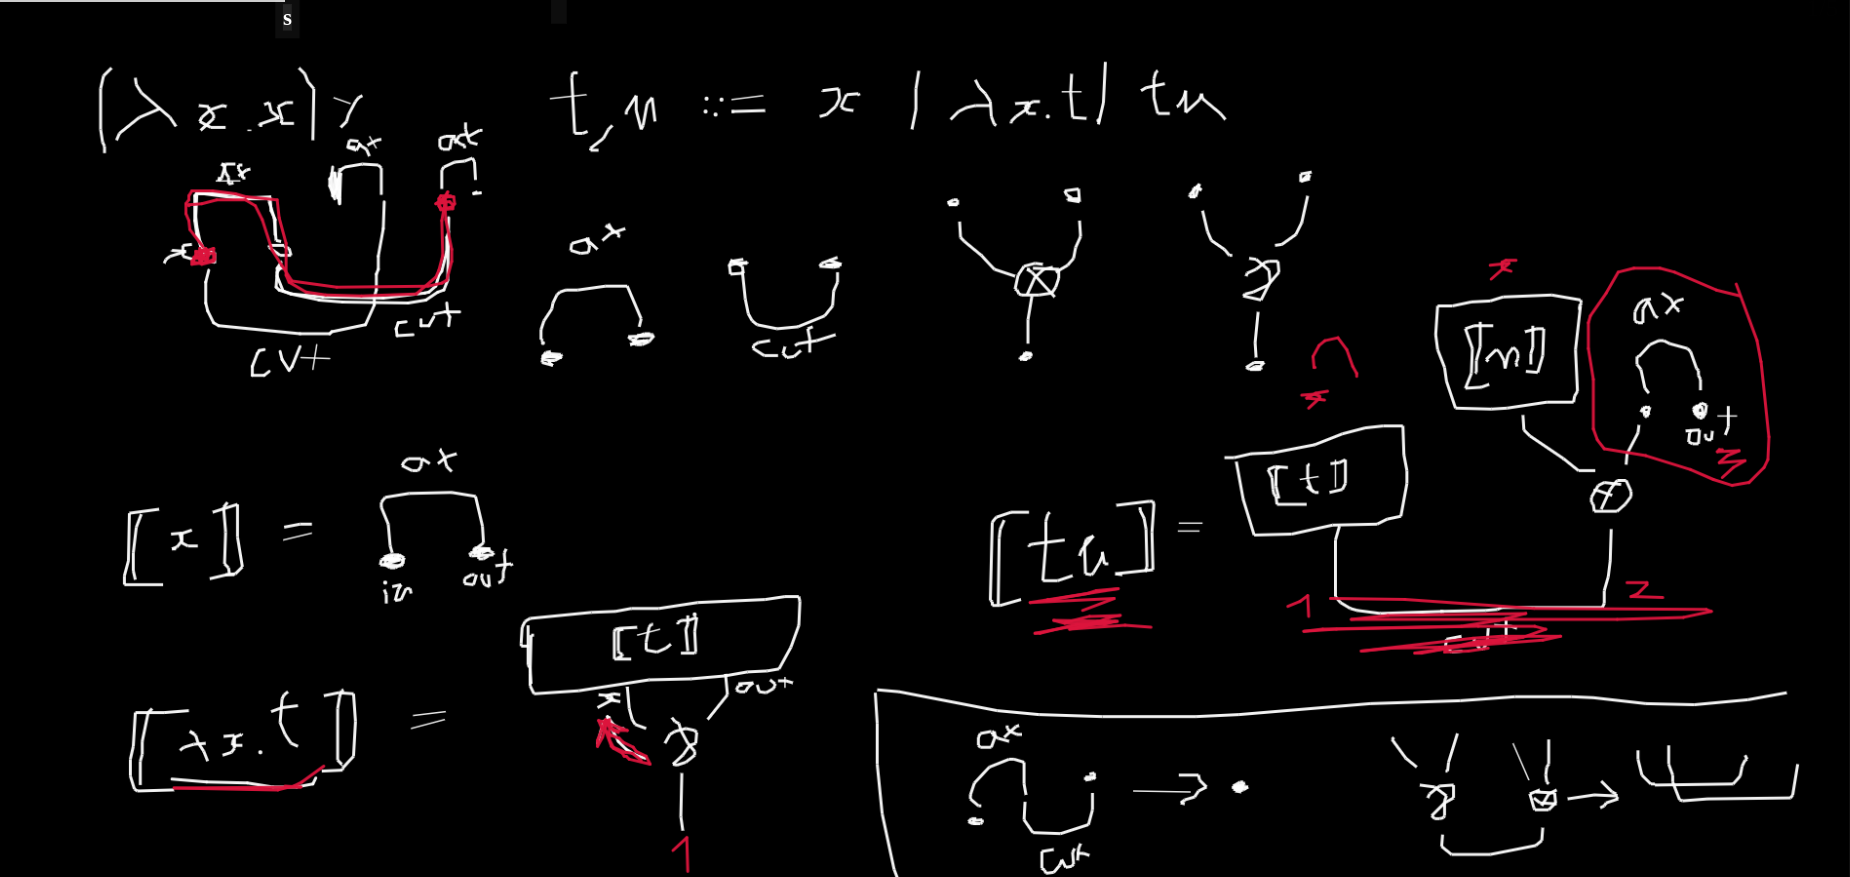 s
(λx.x)y
t,u ::= x | λx.t | tu
ax
ax
ax
x
cut
cut
ax
cut
⊗
⅋
[[u]]
ax
out
[[x]] =
ax
in
out
[[tu]] =
[[t]]
⊗
1
2
cut
[[λx.t]] =
[[t]]
x
out
⅋
1
ax
cut
→
⅋
⊗
→